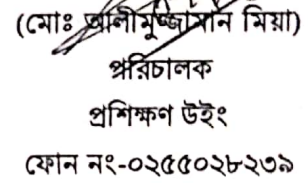 (মোঃ আলীমুজ্জামান মিয়া)
পরিচালক
প্রশিক্ষণ উইং
ফোন নং-০২৫৫০২৮২৩৯